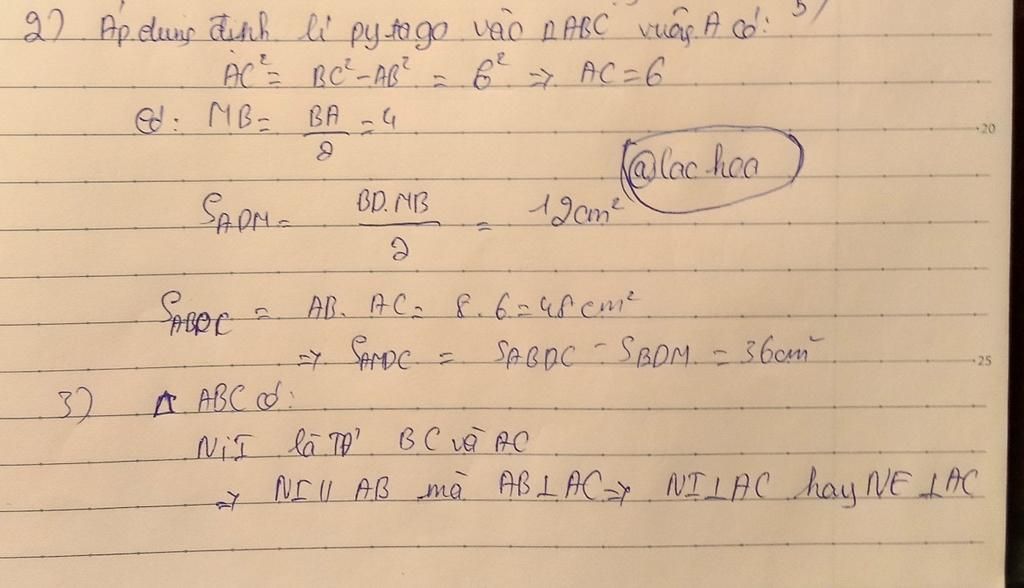 5/
2) Áp dụng định lí pytago vào ΔABC vuông A có:
AC² = BC² - AB² = 6² => AC = 6
Có: MB = BA/2 = 4
@lac hoa
S_ADM = BD.MB/2 = 12cm²
S_ABDC = AB. AC = 8.6 = 48cm²
=> S_AMDC = S_ABDC - S_BDM = 36cm²
3) Δ ABC có:
N; I là TĐ BC và AC
=> NI // AB mà AB ⊥ AC => NI ⊥ AC hay NE ⊥ AC
20
25